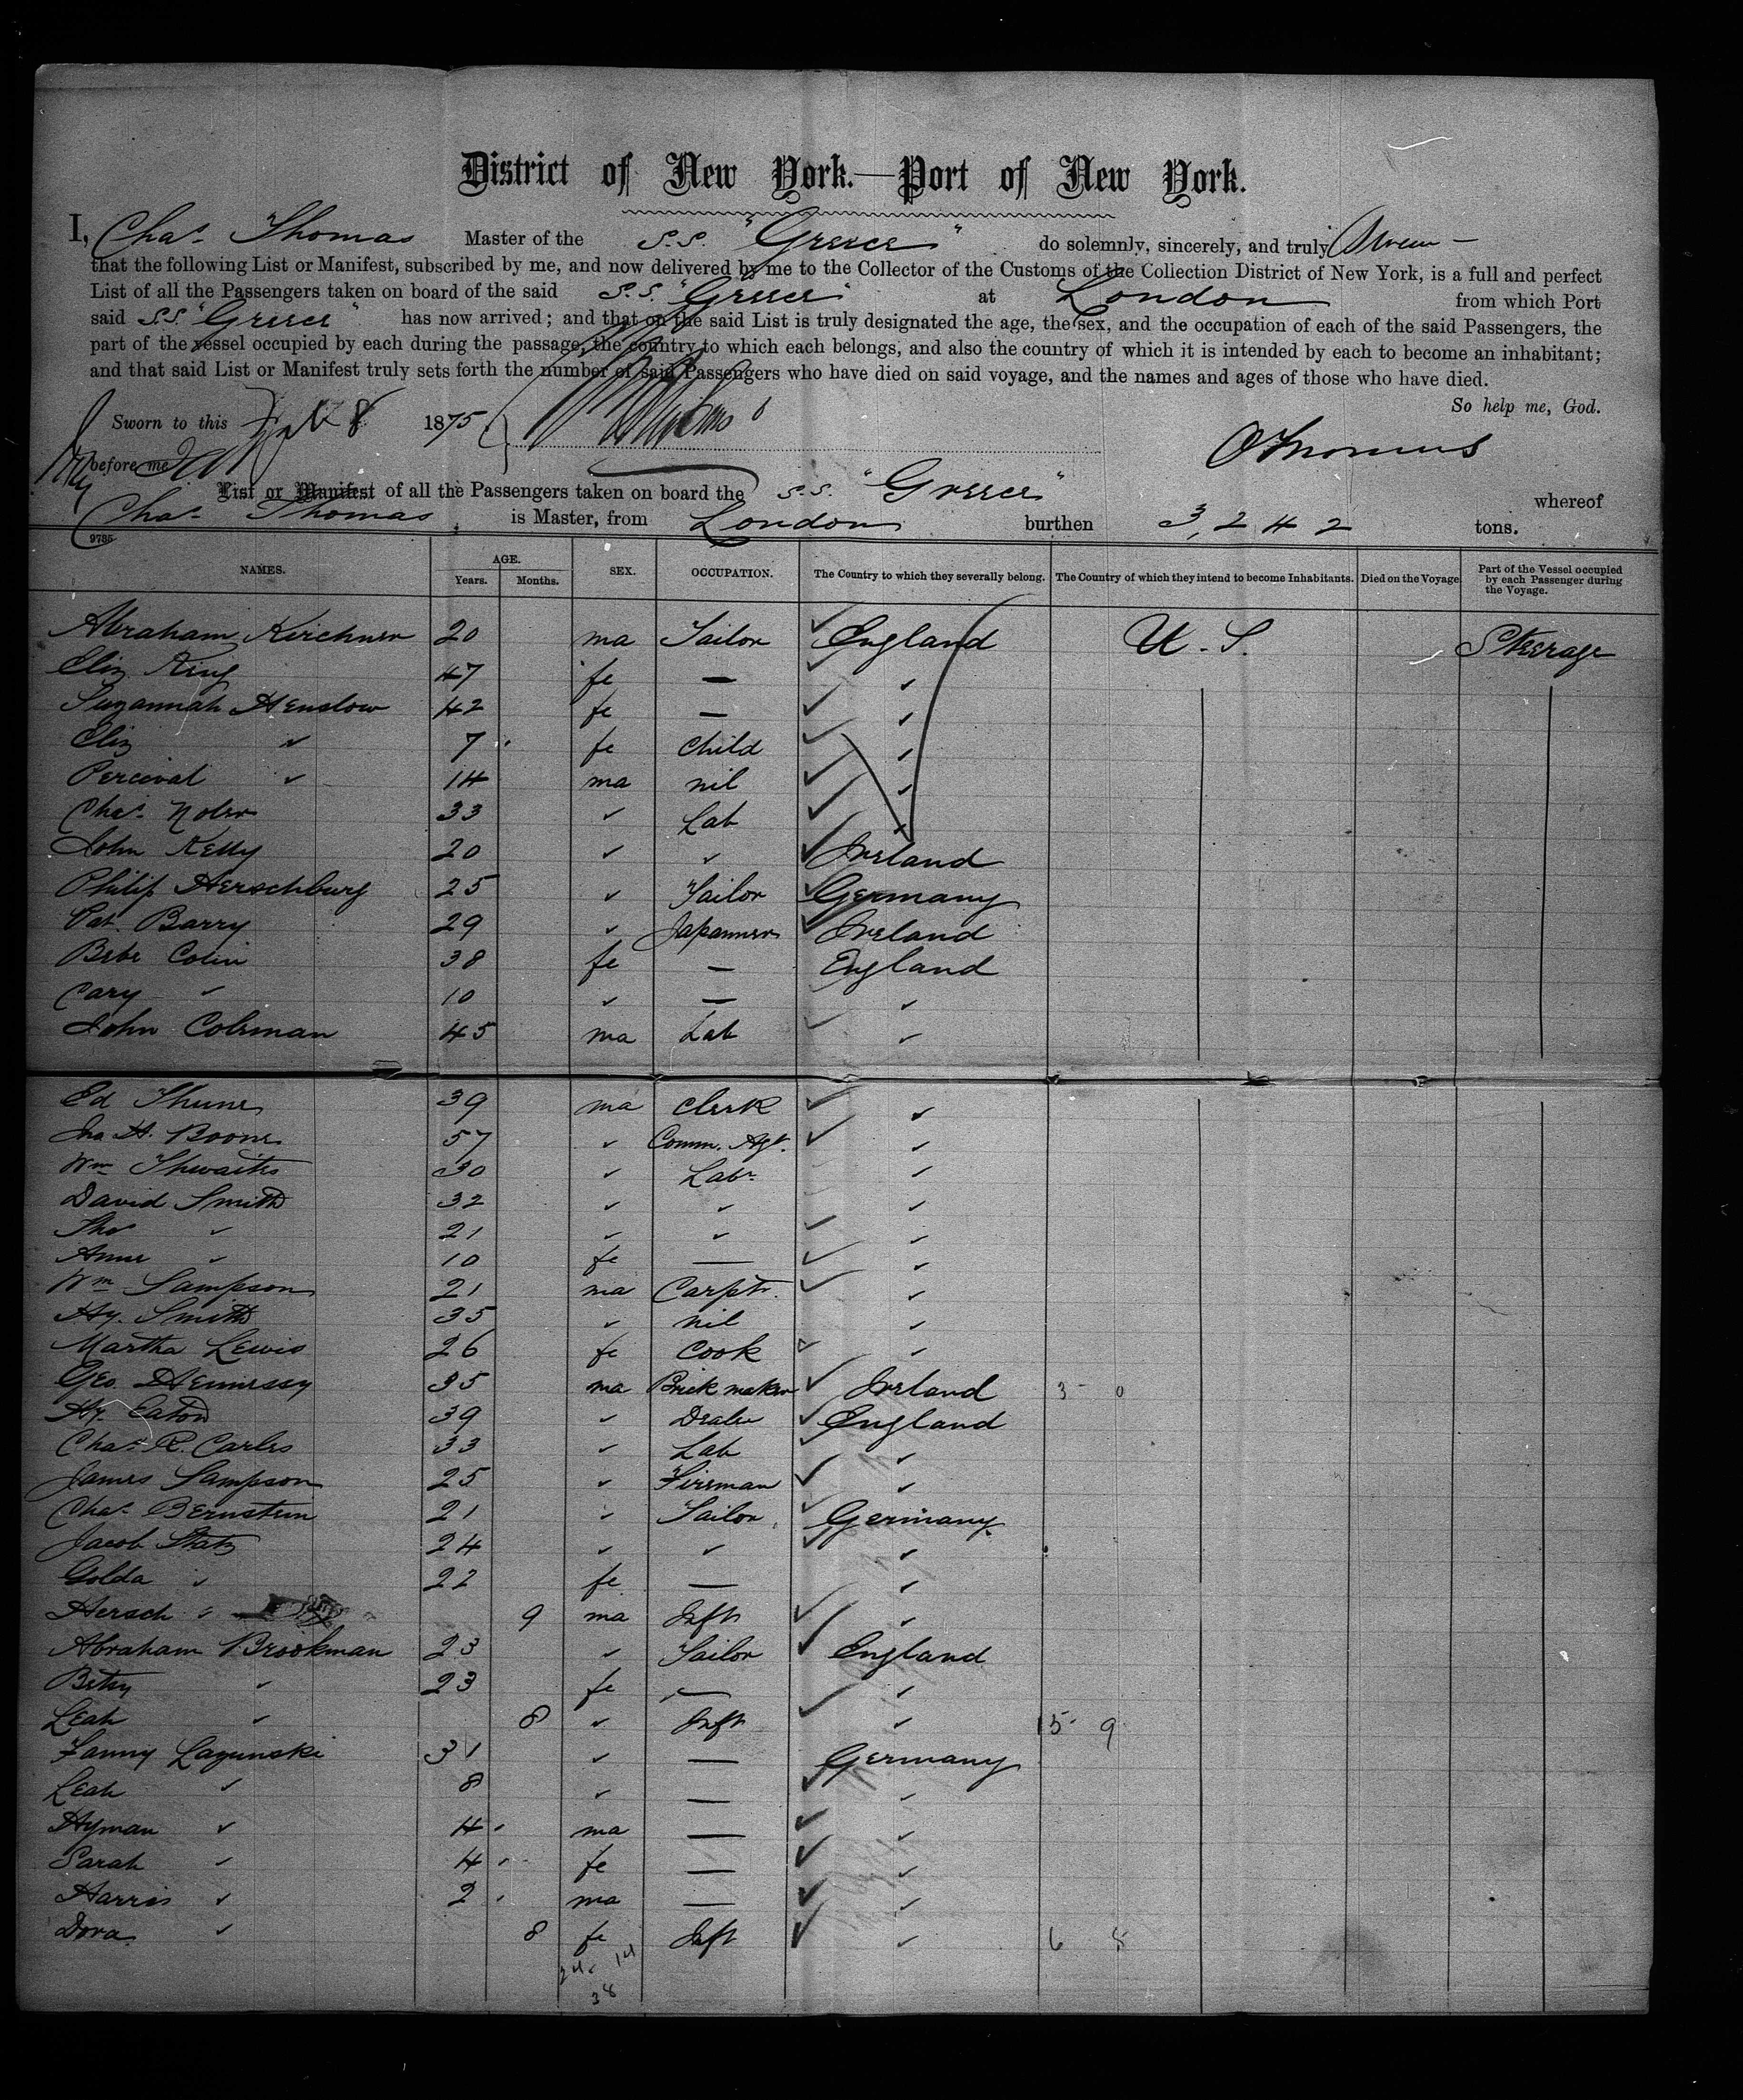 District of New York.—Port of New York.
I, Chas. Thomas Master of the S.S. "Greece" do solemnly, sincerely, and truly Swear —
that the following List or Manifest, subscribed by me, and now delivered by me to the Collector of the Customs of the Collection District of New York, is a full and perfect
List of all the Passengers taken on board of the said S.S. "Greece" at London from which Port
said S.S. "Greece" has now arrived; and that on the said List is truly designated the age, the sex, and the occupation of each of the said Passengers, the
part of the vessel occupied by each during the passage, the country to which each belongs, and also the country of which it is intended by each to become an inhabitant;
and that said List or Manifest truly sets forth the number of said Passengers who have died on said voyage, and the names and ages of those who have died.
So help me, God.
Sworn to this 8 1875
before me CThomas
List or Manifest of all the Passengers taken on board the S.S. "Greece" whereof
Chas. Thomas is Master, from London burthen 3,242 tons.
9785
NAMES. AGE. Years. Months. SEX. OCCUPATION. The Country to which they severally belong. The Country of which they intend to become Inhabitants. Died on the Voyage Part of the Vessel occupied by each Passenger during the Voyage.
Abraham Kirchner 20 ma Tailor England U.S. Steerage
Eliz King 47 fe — ✓
Suzannah Henslow 42 fe — ✓
Eliz ✓ 7 fe Child ✓
Percival ✓ 14 ma nil ✓
Chas. 33 ✓ Lab ✓
John Kelly 20 ✓ ✓ Ireland
Philip Herschburg 25 ✓ Tailor Germany
Pat. Barry 29 ✓ Japanner Ireland
Bebe Colin 38 fe — England
Cary ✓ 10 ✓ — ✓
John Coleman 45 ma Lab ✓
Ed Thune 39 ma Clerk ✓
Jno H. Boone 57 ✓ Comm. Agt. ✓
Wm Thwaites 30 ✓ Labr ✓
David Smith 32 ✓ ✓ ✓
Thos ✓ 21 ✓ ✓ ✓
Anne ✓ 10 fe — ✓
Wm Sampson 21 ma Carptr. ✓
Hy. Smith 35 ✓ nil ✓
Martha Lewis 26 fe Cook ✓
Geo. Hennessy 35 ma Brick maker Ireland 3 - 0
Hy. Eaton 39 ✓ Dealer England
Chas. R. Carles 33 ✓ Lab ✓
James Sampson 25 ✓ Fireman ✓
Chas. Bernstein 21 ✓ Tailor Germany
Jacob Statz 24 ✓ ✓ ✓
Golda ✓ 22 fe — ✓
Hersch ✓ 9 ma Inft ✓
Abraham Brookman 23 ✓ Tailor England
Betsy ✓ 23 fe — ✓
Leah ✓ 8 ✓ Inft ✓ 15 - 9
Fanny Lazunski 31 ✓ — Germany
Leah ✓ 8 ✓ — ✓
Hyman ✓ 4 ma — ✓
Sarah ✓ 4 fe — ✓
Harris ✓ 2 ma — ✓
Dora ✓ 8 fe Inft ✓ 6
24 14
38